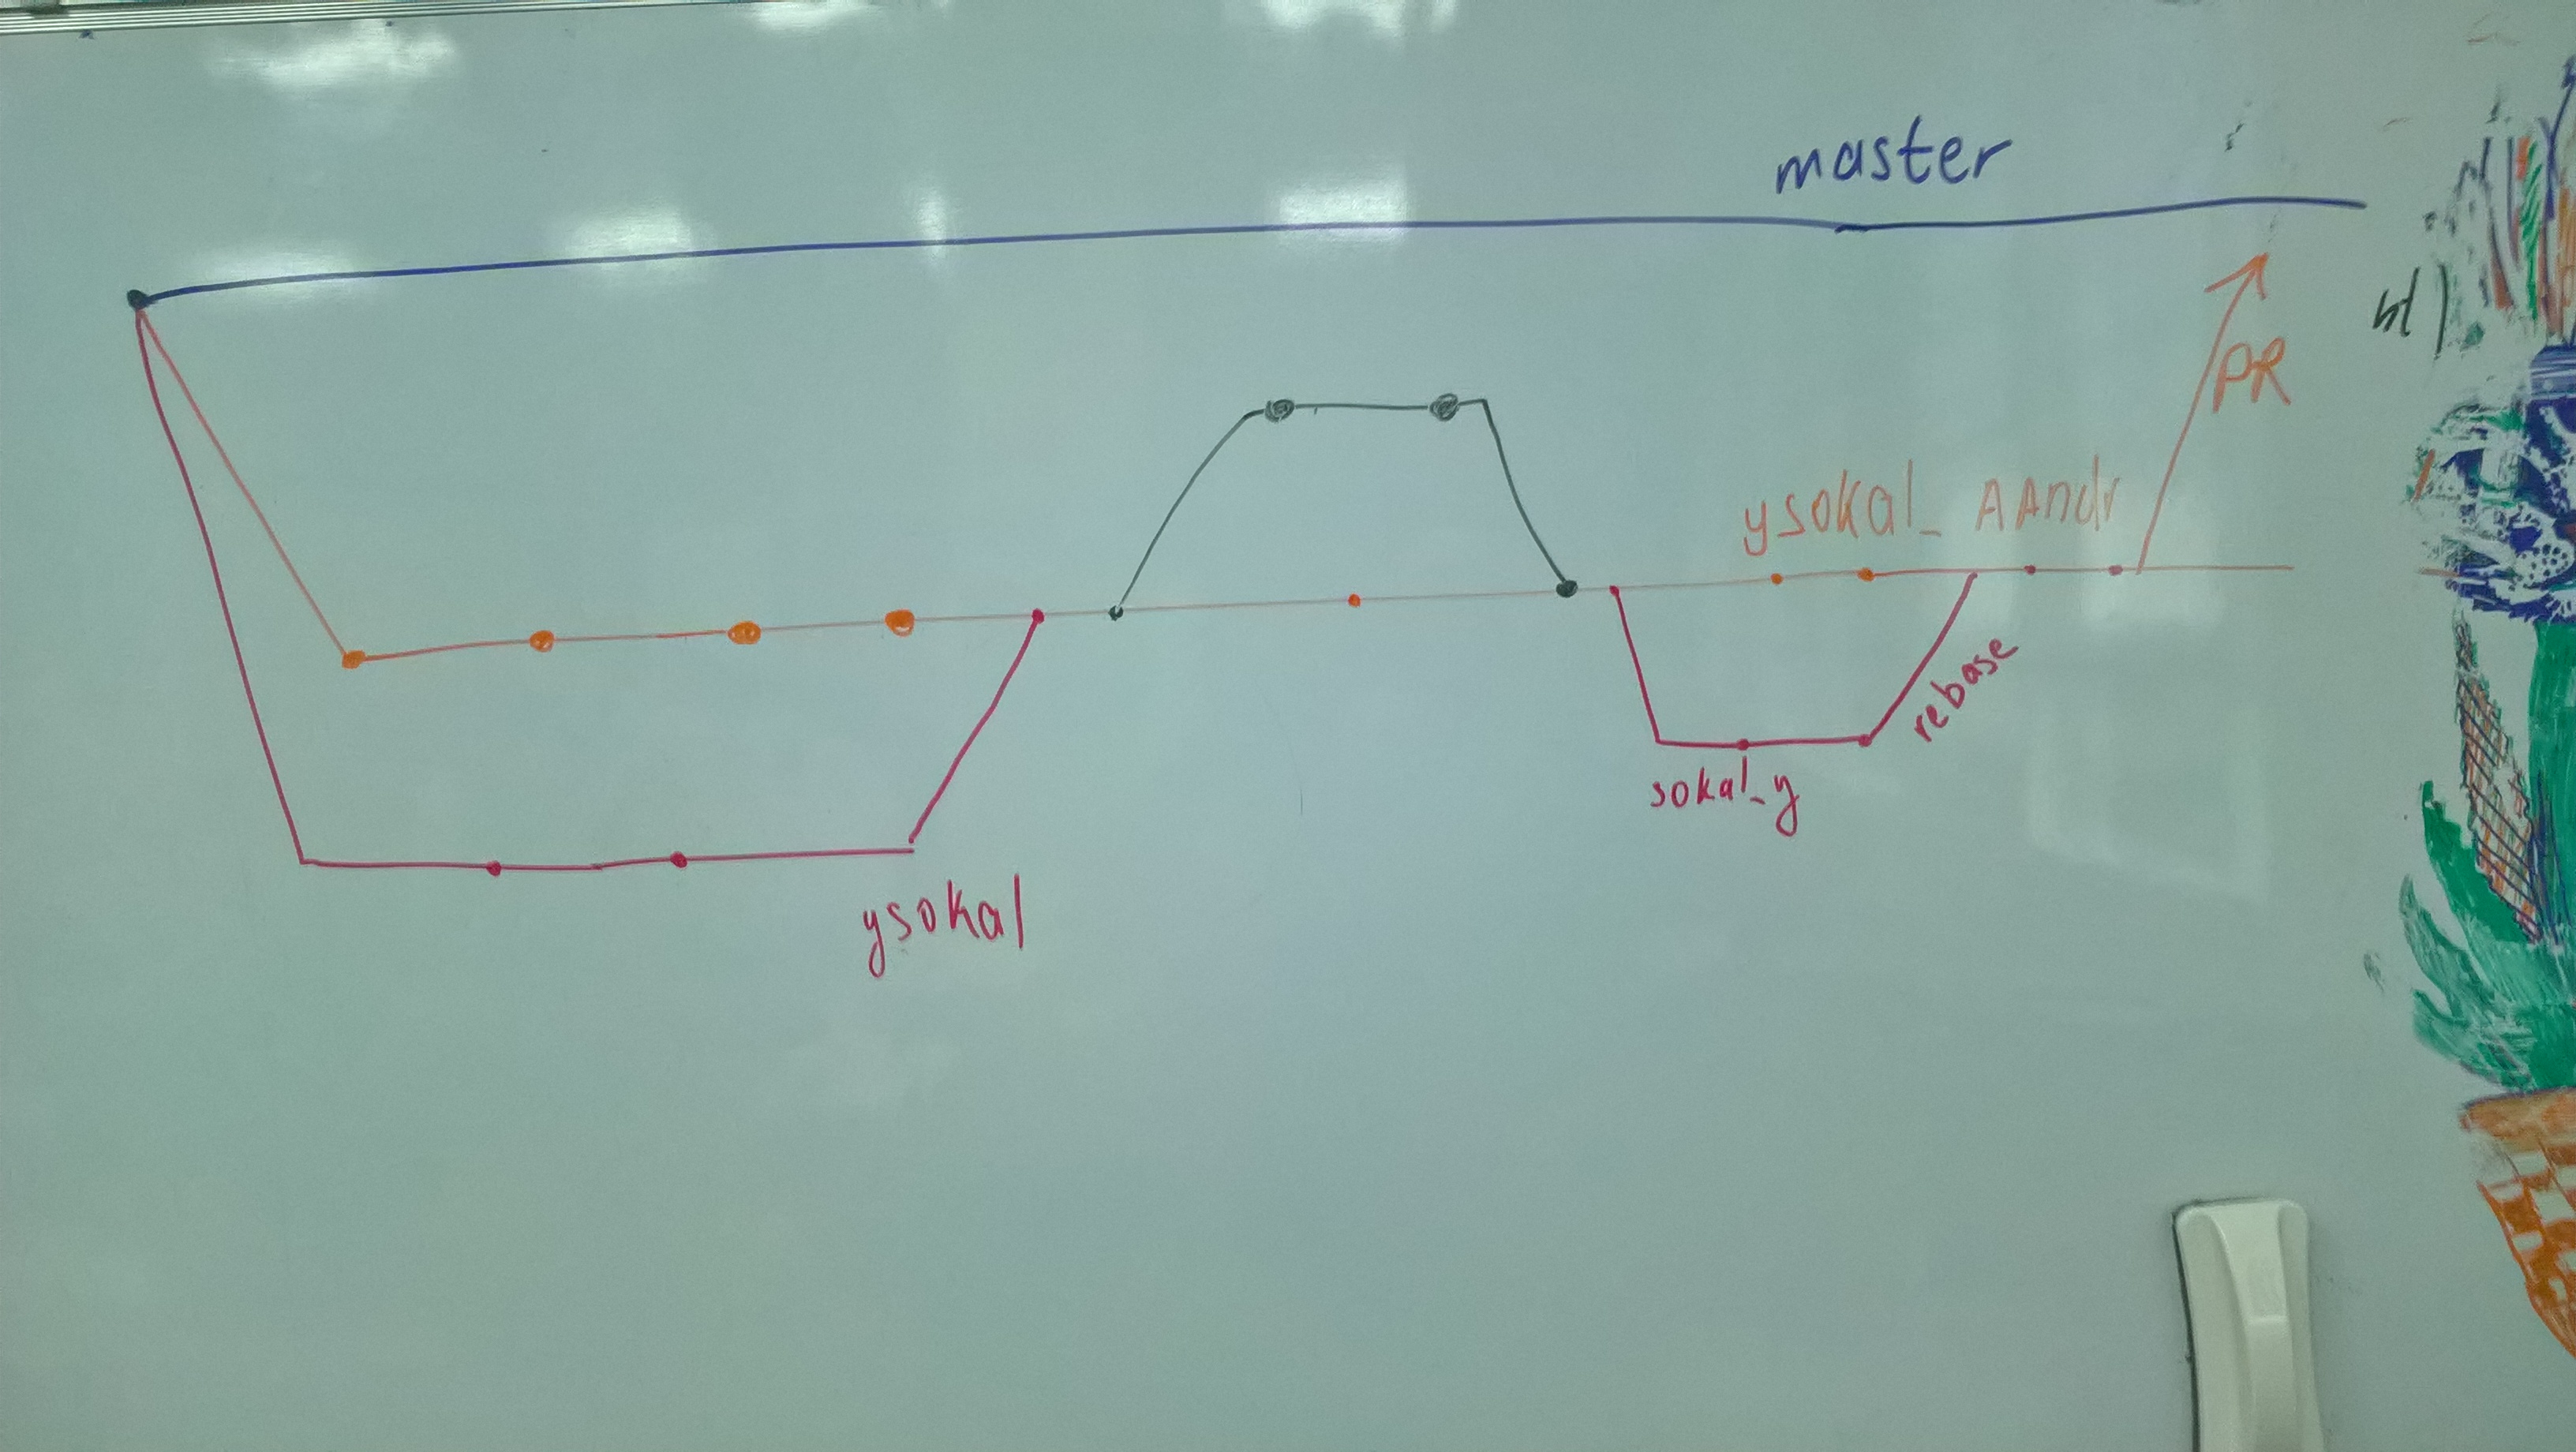 master
PR
ysokal_ AAndr
rebase
sokal_y
ysokal